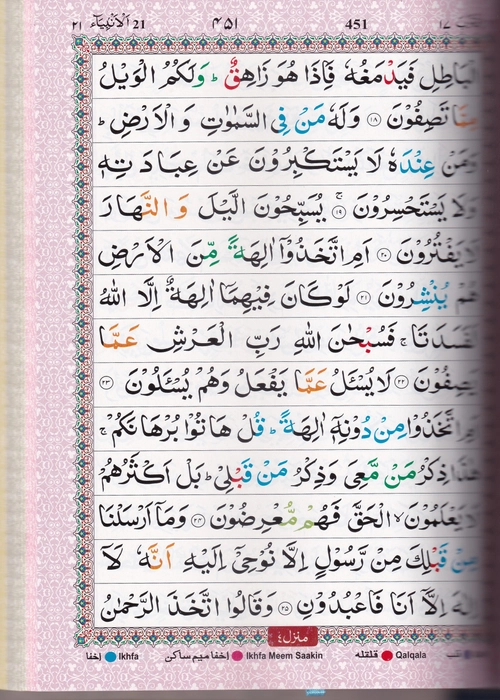 ٢١ الانبياء 21 ٤٥١ 451 ١٧
لْبَاطِلِ فَيَدْمَغُهٗ فَاِذَا هُوَ زَاهِقٌ ؕ وَلَكُمُ الْوَيْلُ
مِمَّا تَصِفُوْنَ ﴿۱۸﴾ وَلَهٗ مَنْ فِى السَّمٰوٰتِ وَ الْاَرْضِ ؕ
وَمَنْ عِنْدَهٗ لَا يَسْتَكْبِرُوْنَ عَنْ عِبَادَتِهٖ
وَلَا يَسْتَحْسِرُوْنَ ۚ ﴿۱۹﴾ يُسَبِّحُوْنَ الَّيْلَ وَ النَّهَارَ
لَا يَفْتُرُوْنَ ﴿۲۰﴾ اَمِ اتَّخَذُوْۤا اٰلِهَةً مِّنَ الْاَرْضِ
هُمْ يُنْشِرُوْنَ ﴿۲۱﴾ لَوْ كَانَ فِيْهِمَاۤ اٰلِهَةٌ اِلَّا اللّٰهُ
لَفَسَدَتَا ۚ فَسُبْحٰنَ اللّٰهِ رَبِّ الْعَرْشِ عَمَّا
يَصِفُوْنَ ﴿۲۲﴾ لَا يُسْـَٔلُ عَمَّا يَفْعَلُ وَهُمْ يُسْـَٔلُوْنَ ﴿۲۳﴾
اَمِ اتَّخَذُوْا مِنْ دُوْنِهٖۤ اٰلِهَةً ؕ قُلْ هَاتُوْا بُرْهَانَكُمْ ۚ
هٰذَا ذِكْرُ مَنْ مَّعِىَ وَذِكْرُ مَنْ قَبْلِىْ ؕ بَلْ اَكْثَرُهُمْ
لَا يَعْلَمُوْنَ ۙ الْحَقَّ فَهُمْ مُّعْرِضُوْنَ ﴿۲۴﴾ وَمَاۤ اَرْسَلْنَا
مِنْ قَبْلِكَ مِنْ رَّسُوْلٍ اِلَّا نُوْحِىْۤ اِلَيْهِ اَنَّهٗ لَاۤ
اِلٰهَ اِلَّاۤ اَنَا فَاعْبُدُوْنِ ﴿۲۵﴾ وَقَالُوا اتَّخَذَ الرَّحْمٰنُ
منزل ٤
قلب Qalqala قلقله Ikhfa Meem Saakin إخفا ميم ساكن Ikhfa إخفا